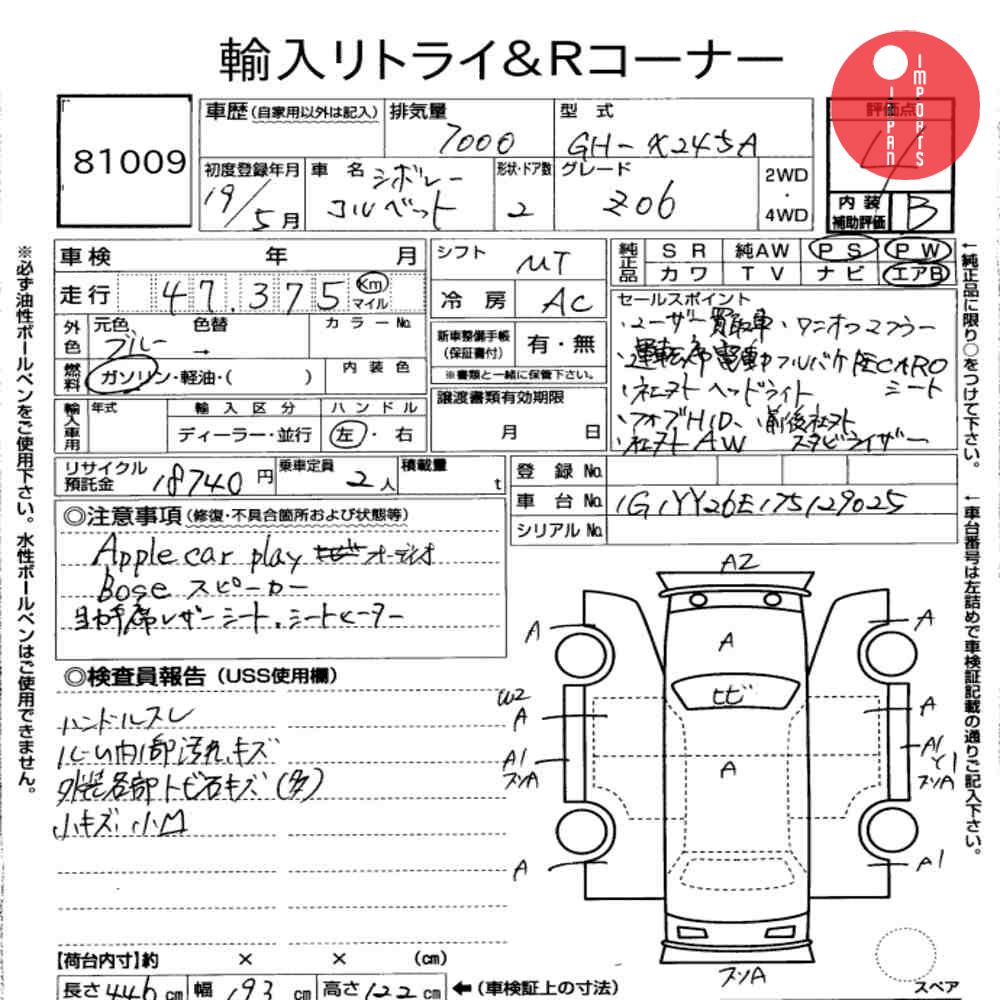 輸入リトライ&Rコーナー
IMPORTS
JAPAN
81009
車歴(自家用以外は記入) 排気量 7000 型式 GH-X245A
評価点 4
初度登録年月 19/5月 車名 シボレー コルベット 形状・ドア数 2 グレード Z06 2WD・4WD
内装補助評価 B
車検 年 月 シフト MT
純正品 SR 純AW PS PW
カワ TV ナビ エアB
走行 47.375 Km マイル 冷房 AC
外色 元色 ブルー 色替 カラーNo.
新車整備手帳(保証書付) 有・無
※書類と一緒に保管下さい。
燃料 ガソリン・軽油・( ) 内装色
輸入車用 年式 輸入区分 ディーラー・並行 ハンドル 左・右
譲渡書類有効期限 月 日
セールスポイント
・ユーザー買取車・ワンオフマフラー
・運転席電動フルバケRECARO
シート
・社外ヘッドライト
・フォグHID、前後社外
・社外AW スタビライザー
リサイクル預託金 18740円 乗車定員 2人 積載量 t
登録No.
車台No. 1G1YY26E175129025
シリアルNo.
◎注意事項(修復・不具合箇所および状態等)
Apple car play オーディオ
Bose スピーカー
レザーシート、シートヒーター
◎検査員報告(USS使用欄)
ハンドルスレ
内部汚れ、キズ
外装各部トビ石キズ(多)
小キズ、小凹
A2
A A
A
W2
A ヒビ A
A1 A A1
スソA スソA
A A1
スソA
スペア
【荷台内寸】約 × × (cm)
長さ 446cm 幅 193cm 高さ 122cm ←(車検証上の寸法)
※必ず油性ボールペンをご使用下さい。水性ボールペンはご使用できません。
←純正品に限り○をつけて下さい。
←車台番号は左詰めで車検証記載の通りご記入下さい。